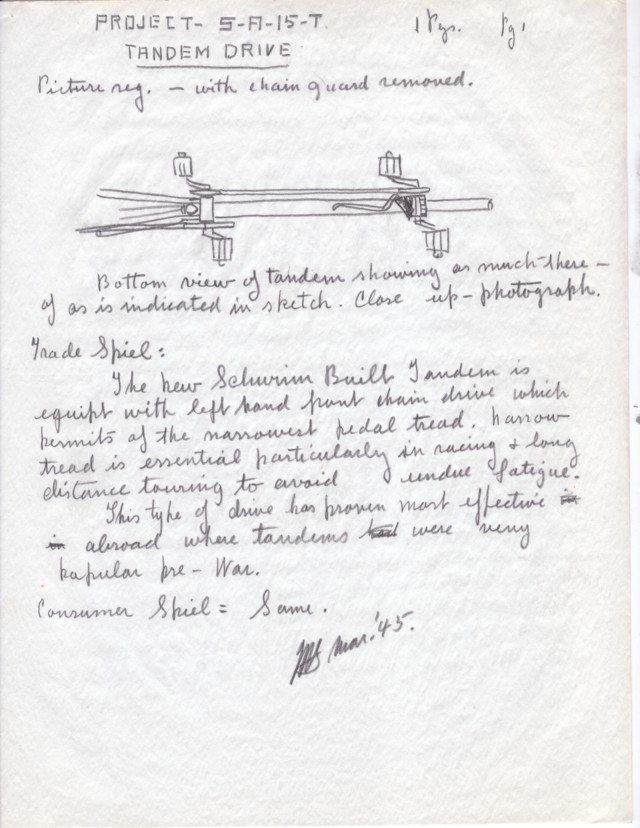 PROJECT- S-A-15-T. 1 Pgs. Pg 1
TANDEM DRIVE
Picture reg. - with chain guard removed.
Bottom view of tandem showing as much there-
of as is indicated in sketch. Close up-photograph.
Trade Spiel:
The new Schwinn Built Tandem is
equipt with left hand front chain drive which
permits of the narrowest pedal tread. Narrow
tread is essential particularly in racing & long
distance touring to avoid undue fatigue.
This type of drive has proven most effective in
in abroad where tandems had were very
popular pre-War.
Consumer Spiel = Same.
Mar. '45.